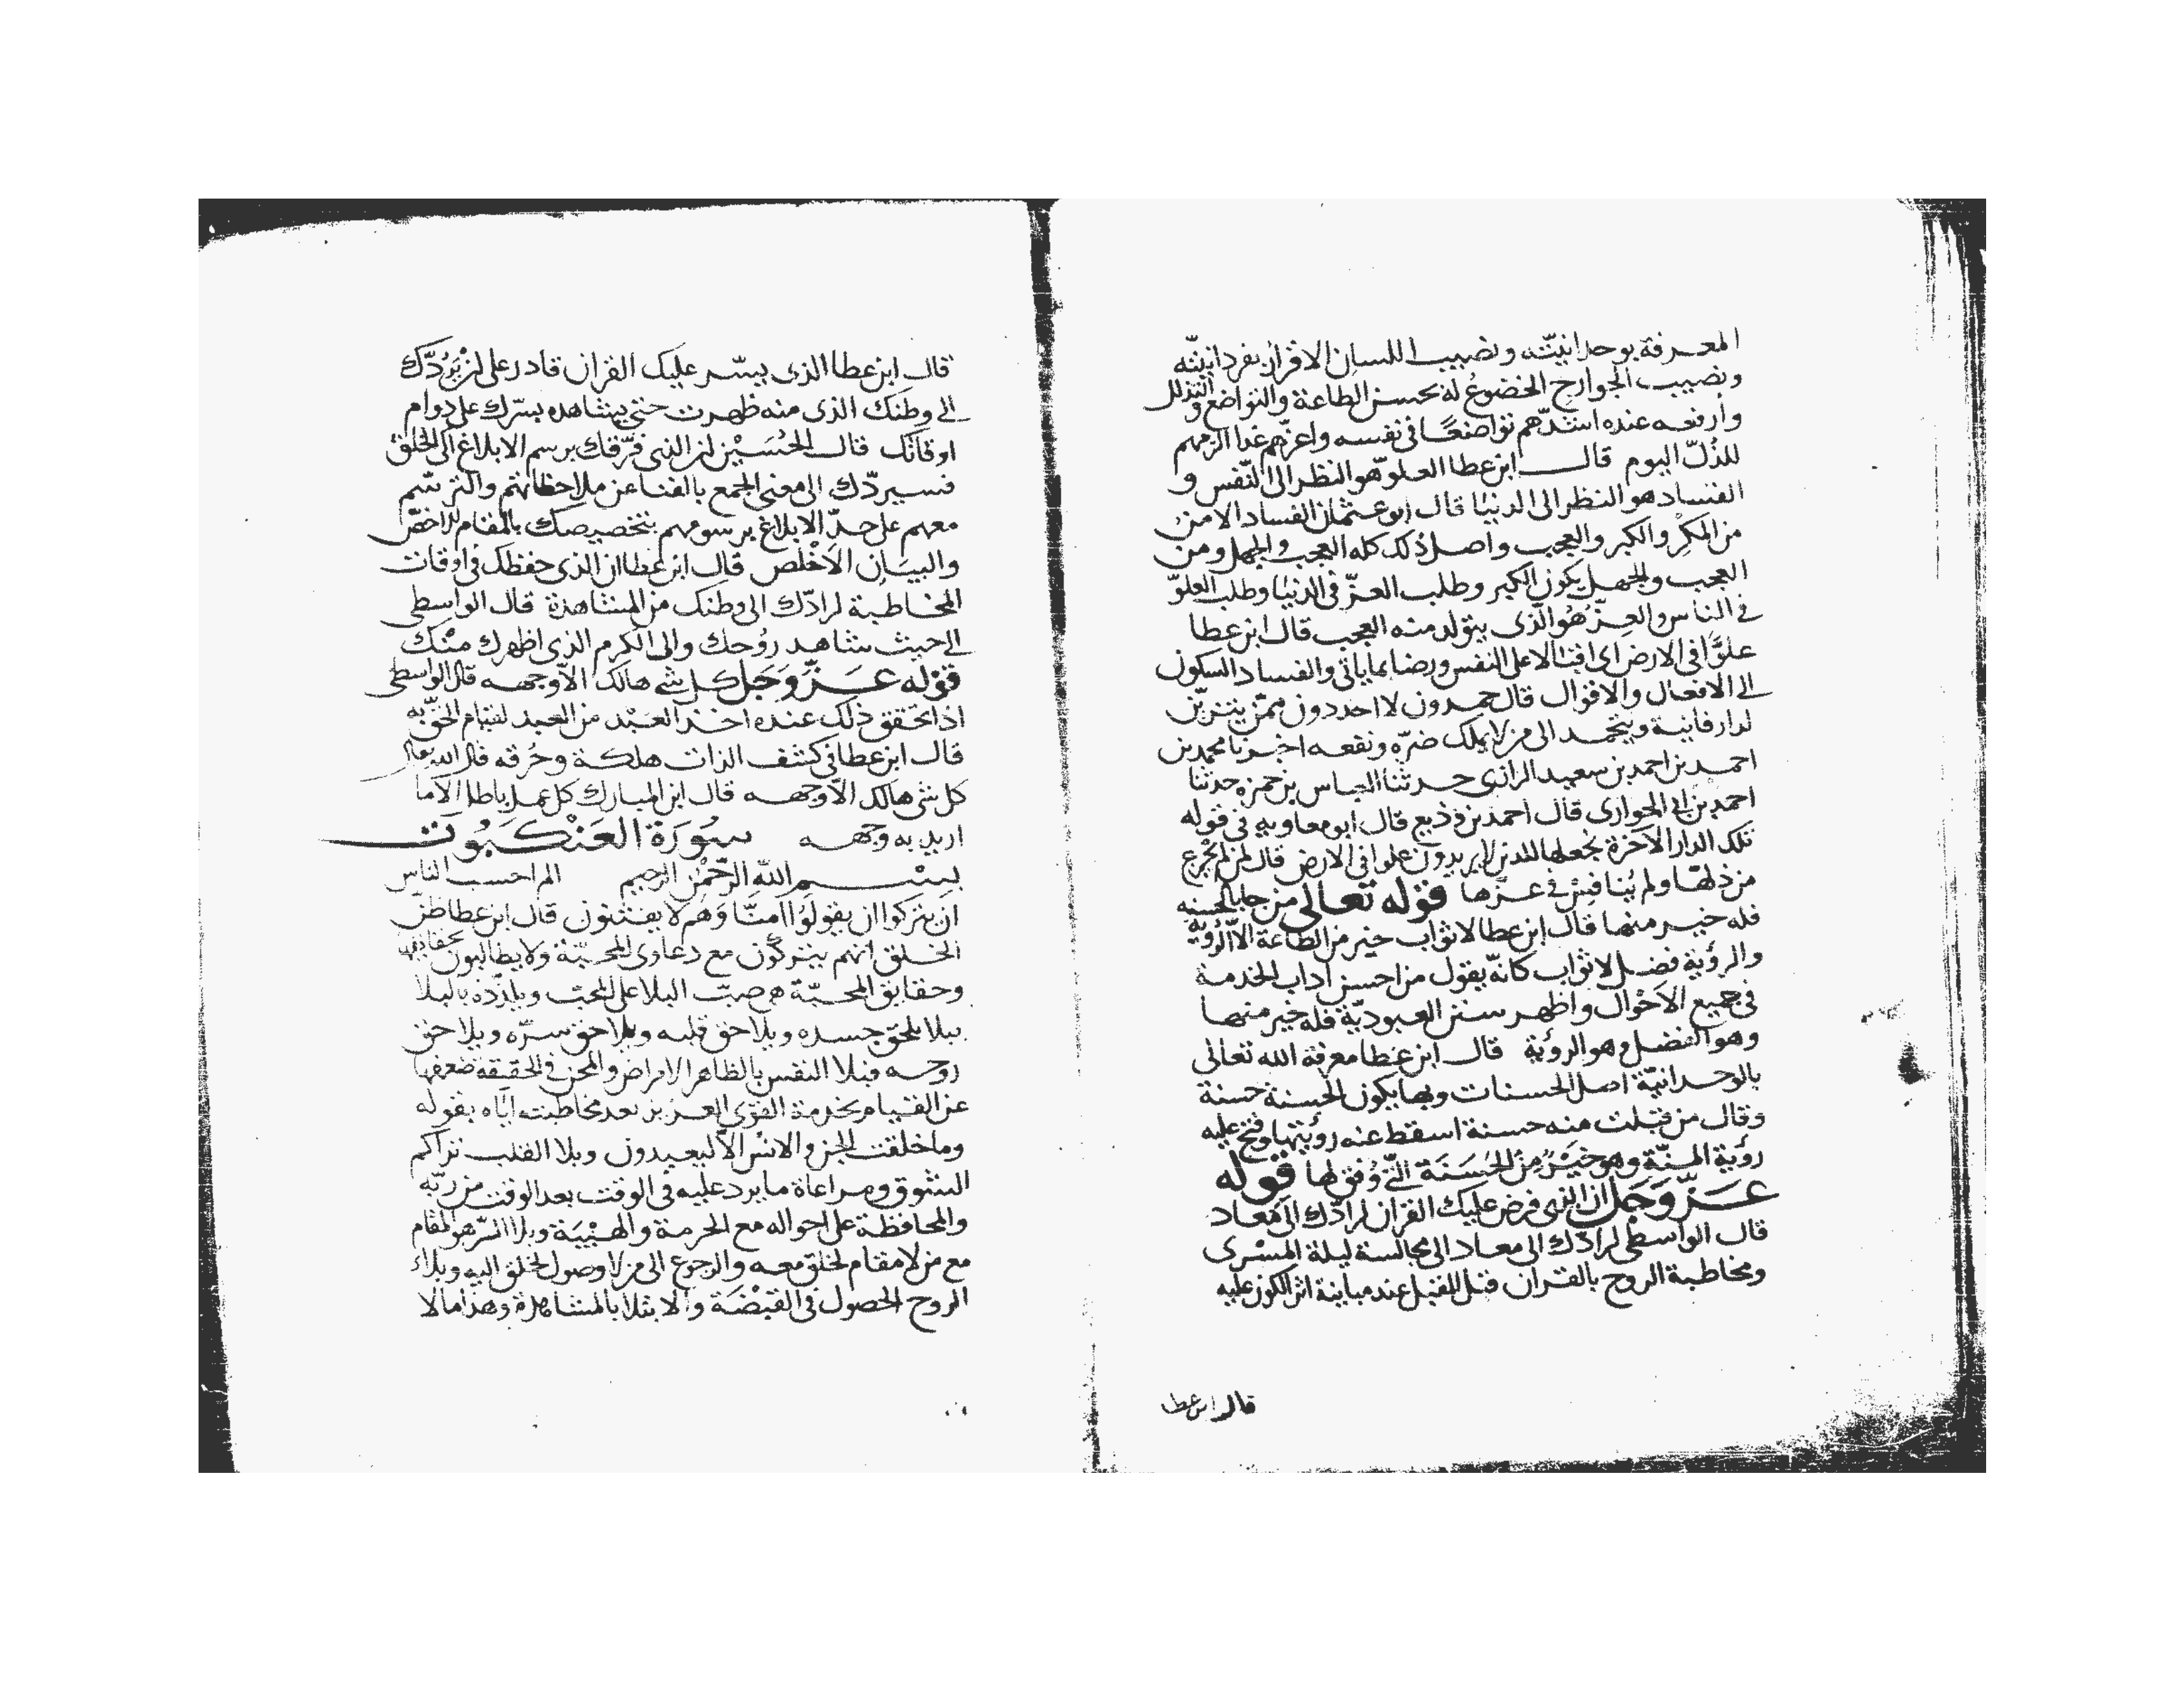 المعرفة بوحدانيته ونصيب اللسان الاقرار بفردانيته
ونصيب الجوارح الخضوع له بحسن الطاعة والتواضع والتذلل
وارفعه عنده اشدهم تواضعا فى نفسه واعزهم غدا الزمهم
للذُلّ اليوم قال ابن عطا العلوّ هو النظر الى النّفس و
الفساد هو النظر الى الدنيا قال ابو عثمان الفساد الامن
من المكر والكبر والعجب واصل ذلك كله العجب والجهل ومن
العجب والجهل يكون الكبر وطلب العزّ فى الدنيا وطلب العلوّ
فى الناس والعِزّ هُو الّذى يتولد منه العجب قال ابن عطا
علوًّا فى الارض اى اقبالا على النفس ورضا بما ياتى والفساد السكون
الى الافعال والاقوال قال حمدون لا احد دون ممّن يتزيّن
لدار فانية ويتحمد الى من لا يملك ضرّه ونفعه اخبرنا محمد بن
احمد بن احمد بن سعيد الرازى حدثنا العباس بن حمزه حدثنا
احمد بن ابى الحوارى قال احمد بن وديع قال ابو معاويه فى قوله
تلك الدار الآخرة نجعلها للذين لا يريدون علوا فى الارض قال من لم يجزع
من ذلها ولم يُنافِسْ فى عزّها قوله تعالى من جا بالحسنه
فله خير منها قال ابن عطا لا ثواب خير من الطاعة الا الرؤية
والرؤية فضل لا ثواب كانه يقول من احسن اداب الخدمة
فى جميع الاحْوال واظهر سنن العبوديّة فله خير منها
وهو الفضل وهو الرؤية قال ابن عطا معرفة الله تعالى
بالوحدانيّة اصل الحسنات وبها يكون الحسنة حسنة
وقال من قبلت منه حسنة اسقط عنه رؤيتها وفتح عليه
رؤية المنّة وهو خيْرٌ من الحُسَنَة الّتى وُفق لها قوله
عَزّ وَجَل ان الذى فرض عليك القران لرادّك الى مَعاد
قال الواسطى لرادّك الى معاد الى مجالسة ليلة المسْرى
ومخاطبة الروح بالقران قبل القبل عند مباينة اثر الكون عليه
قال ابن عطا
قال ابن عطا الذى يسّر عليك القران قادر على ان يَرُدّك
الى وطنك الذى منه ظهرت حتى يشاهده بسرّك على دوام
اوقاتك قال الحُسَيْن ان الذى فرّقك برسم الابلاغ الى الخلق
فسيردّك الى معنى الجمع بالفنا عن ملاحظاتهم والترسّم
معهم على حدّ الابلاغ برسومهم بتخصيصك بالمقام الاخصّ
والبيَان الاَخْلص قال ابن عطا ان الذى حفظك فى اوقات
المخاطبة لرادّك الى وطنك من المشاهدة قال الواسطى
الى حيث شاهد روُحك والى الكرم الذى اظهرك منْك
قوْله عَزّ وَجَل كل شى هالك الاّ وجهه قال الواسطى
اذا تحقق ذلك عنده اخذ العَبْد من العبد لقيام الحقّ به
قال ابن عطا فى كشف الذات هلكة وحُرقه قال الله تعالى
كل شى هالك الاّ وجهه قال ابن المبارك كل عمل باطل الاّ ما
اريد به وجهه سُورَة العَنْكبُوت
بسْم الله الرّحمٰن الرحيم الم احسب الناس
ان يتركوا ان يقولُوا آمنّا وَهُم لا يفتنون قال ابن عطا ظنّ
الخلق انهم يتركُون مع دعاوى المحبّة ولا يطالبون بحقايقها
وحقايق المحبّة هى صبّ البلا على المحبّ ويلذّذه بالبلا
ببلا يلحق جسده وبلا حق قلبه وبلا حق سرّه وبلا حق
روحه فبلا النفس بالظاهر الامراض والمحن فى الحقيقة ضعفها
عن القيام بخدمة القوى العزيز بعد مخاطبته ايّاه بقوله
وما خلقت الجن والانسْ الاّ ليعبدون وبلا القلب تراكم
الشوق ومراعاة ما يرد عليه فى الوقت بعد الوقت من ربّه
والمحافظة على احواله مع الحرمة والهيْبَة وبلا السّر هو المقام
مع من لا مقام لخلق معه والرجوع الى من لا وصول لخلق اليه وبلاء
الروح الحصول فى القبْضَة والابتلا بالمشاهدة وهذا ما لا